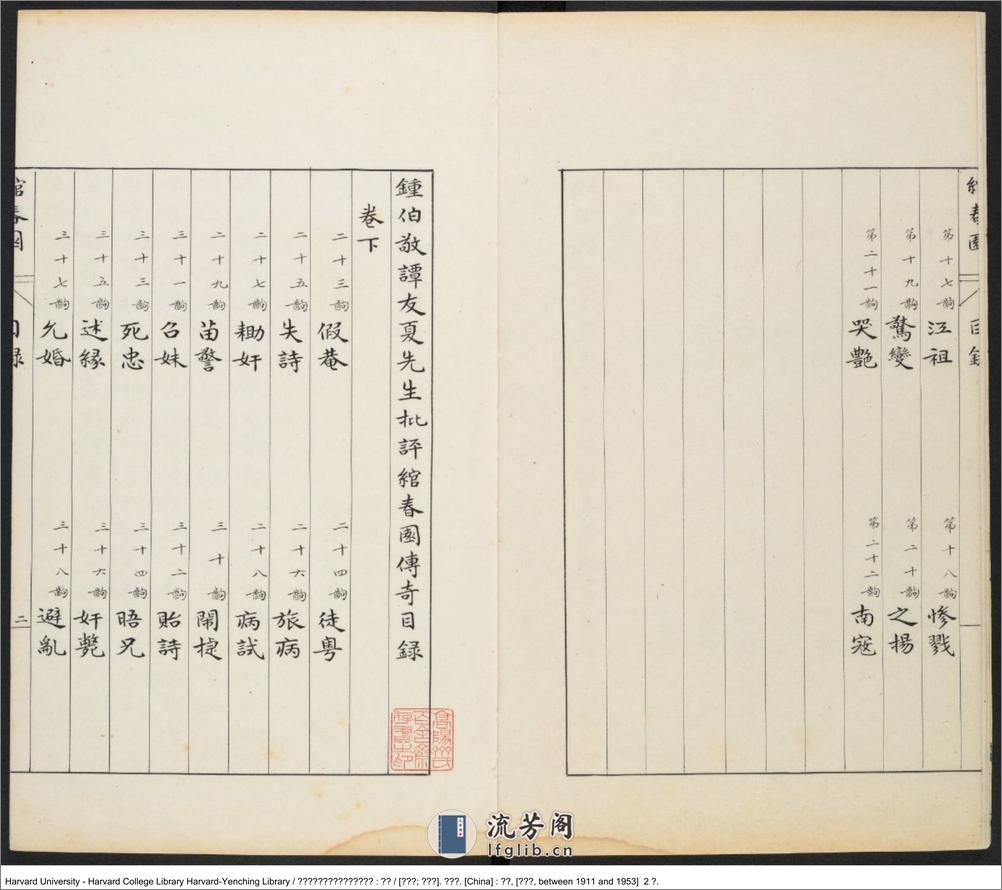 綰春園 目錄
第十七齣 江祖 第十八齣 慘戮
第十九齣 驚變 第二十齣 之揚
第二十一齣 哭艷 第二十二齣 南寇
鍾伯敬譚友夏先生批評綰春園傳奇目錄
高陽齊氏百舍齋存書之印
卷下
二十三齣 假菴 二十四齣 徒粤
二十五齣 失詩 二十六齣 旅病
二十七齣 耡奸 二十八齣 病試
二十九齣 苗警 三十齣 聞捷
三十一齣 召妹 三十二齣 貽詩
三十三齣 死忠 三十四齣 晤兄
三十五齣 述緣 三十六齣 奸斃
三十七齣 允婚 三十八齣 避亂
綰春園 目錄 二
流芳阁
lfglib.cn
Harvard University - Harvard College Library Harvard-Yenching Library / ??????????????? : ?? / [???; ???]. ???. [China] : ??, [???, between 1911 and 1953]  2 ?.